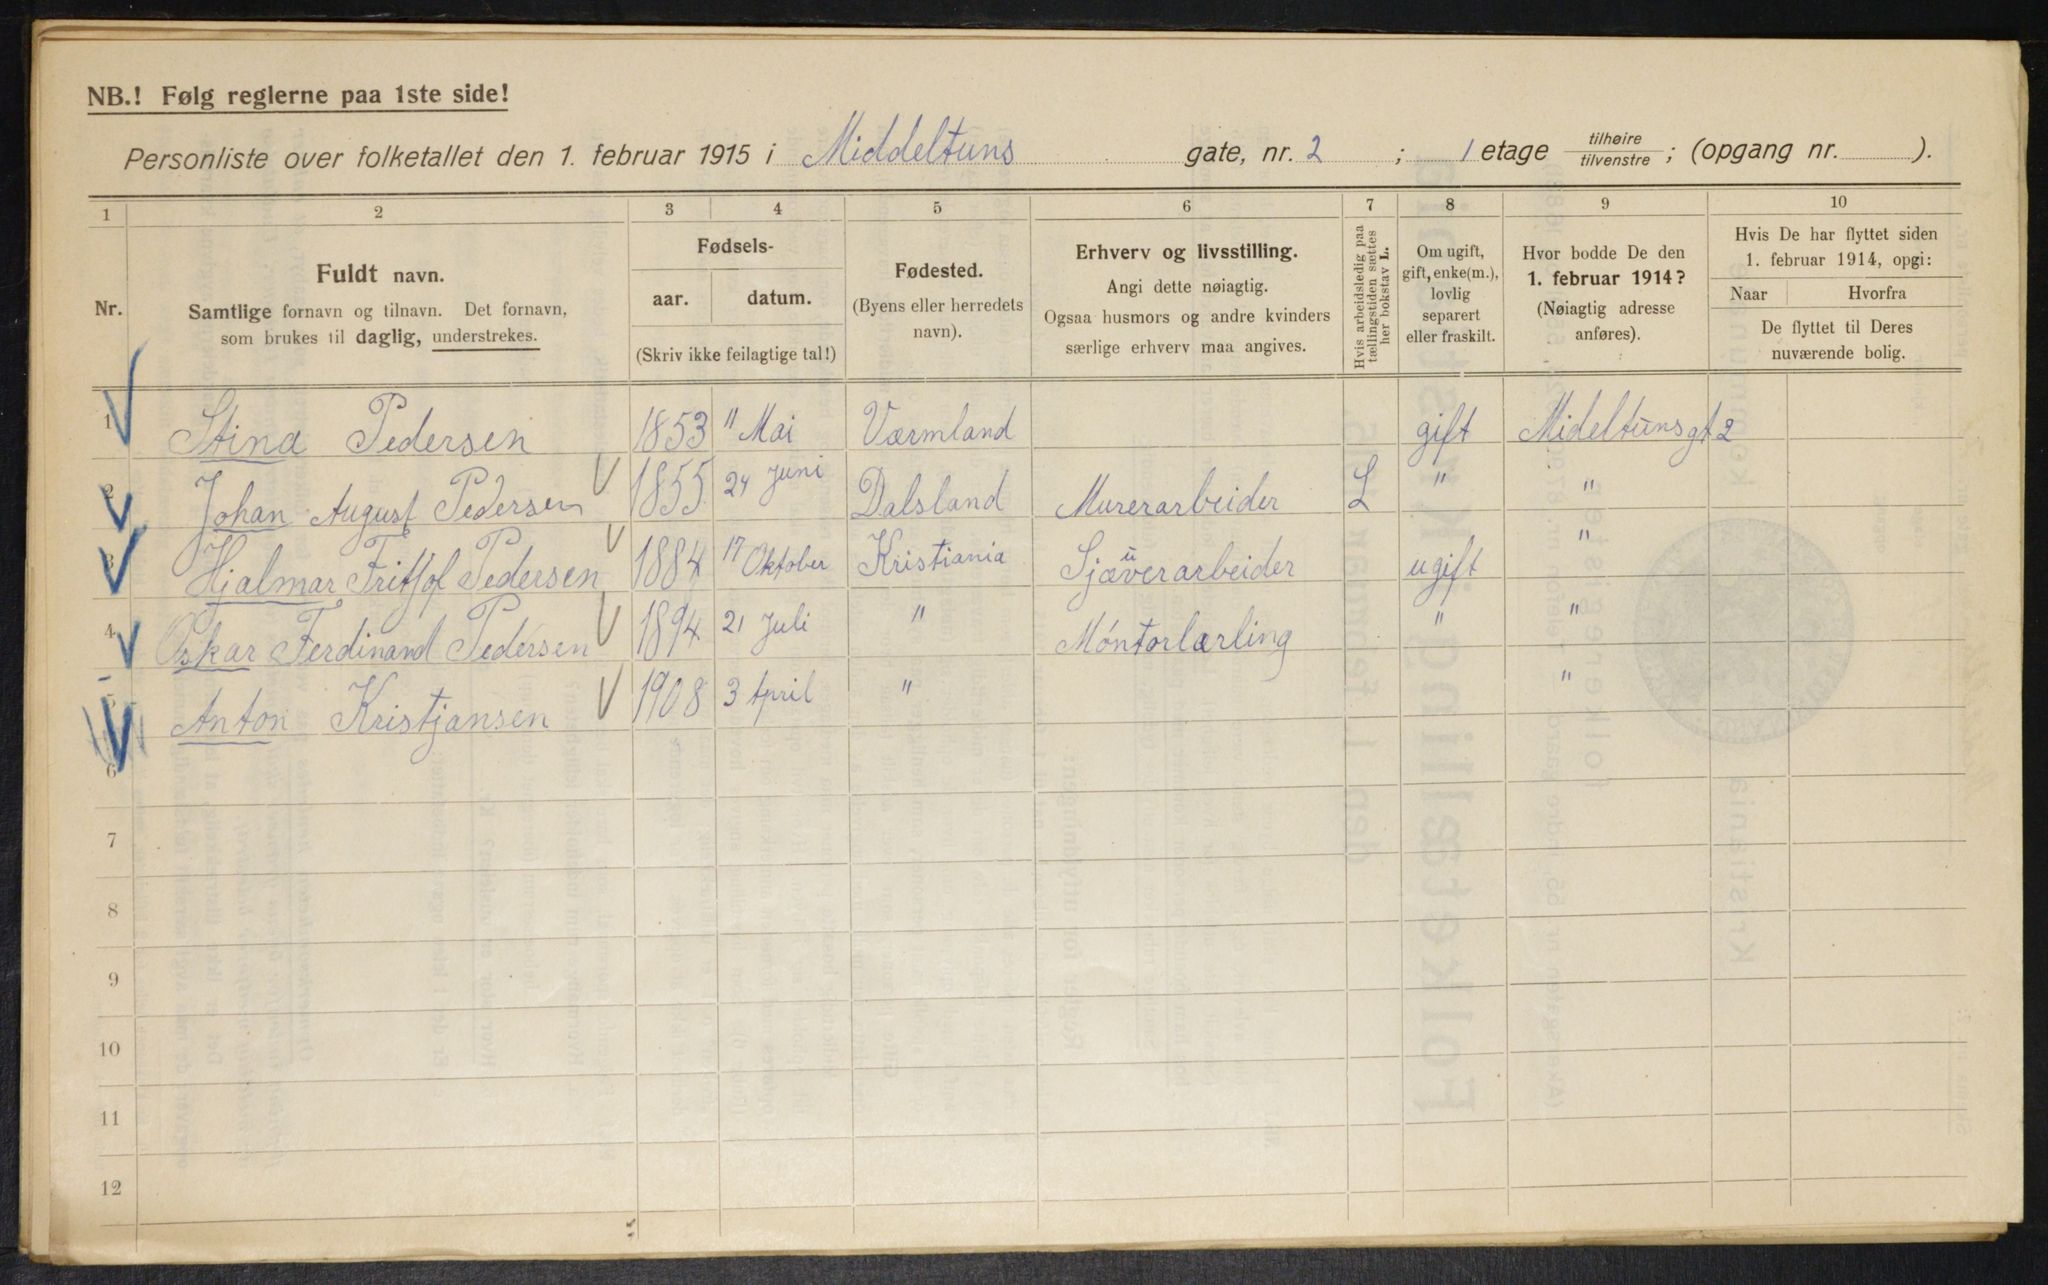 NB.! Følg reglerne paa 1ste side!
Personliste over folketallet den 1. februar 1915 i Middeltuns gate, nr. 2 ; 1 etage tilhøire tilvenstre ; (opgang nr. ).
1 2 3 4 5 6 7 8 9 10
Nr.
Fuldt navn.
Samtlige fornavn og tilnavn. Det fornavn,
som brukes til daglig, understrekes.
Fødsels-
aar. datum.
(Skriv ikke feilagtige tal!)
Fødested.
(Byens eller herredets
navn).
Erhverv og livsstilling.
Angi dette nøiagtig.
Ogsaa husmors og andre kvinders
særlige erhverv maa angives.
Hvis arbeidsledig paa
tællingstiden sættes
her bokstav L.
Om ugift,
gift, enke(m.),
lovlig
separert
eller fraskilt.
Hvor bodde De den
1. februar 1914?
(Nøiagtig adresse
anføres).
Hvis De har flyttet siden
1. februar 1914, opgi:
Naar Hvorfra
De flyttet til Deres
nuværende bolig.
1 Stina Pedersen 1853 11 Mai Værmland gift Mideltunsgt 2
2 Johan August Pedersen 1855 24 Juni Dalsland Murerarbeider L " "
3 Hjalmar Fritjof Pedersen 1884 17 Oktober Kristiania Sjauverarbeider ugift "
4 Oskar Ferdinand Pedersen 1894 21 Juli " Móntorlærling " "
5 Anton Kristjansen 1908 3 April " "
6
7
8
9
10
11
12